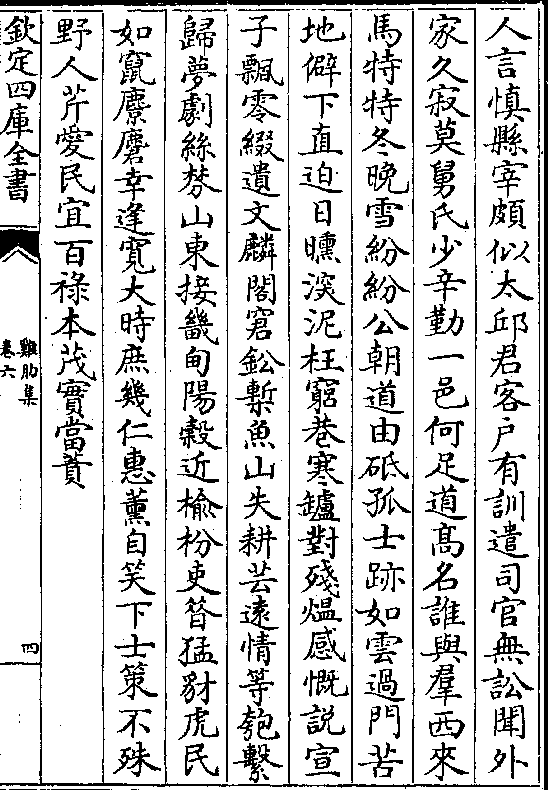 人言慎縣宰頗似太邱君客户有訓遣司官無訟聞外
家久寂莫舅氏少辛勤一邑何足道髙名誰與羣西來
馬特特冬晚雪紛紛公朝道由砥孤士跡如雲過門苦
地僻下直迫日曛淤泥枉窮巷寒罏對殘煴感慨説宣
子飄零綴遺文麟閣窘鈆槧魚山失耕芸逺情等匏繫
歸夢劇絲棼山東接畿甸陽榖近榆枌吏昝猛豺虎民
如竄麏麕幸逢寛大時庶幾仁惠薫自笑下士策不殊
野人芹愛民宜百禄本茂實當蕡
欽定四庫全書
雞肋集
卷六
四